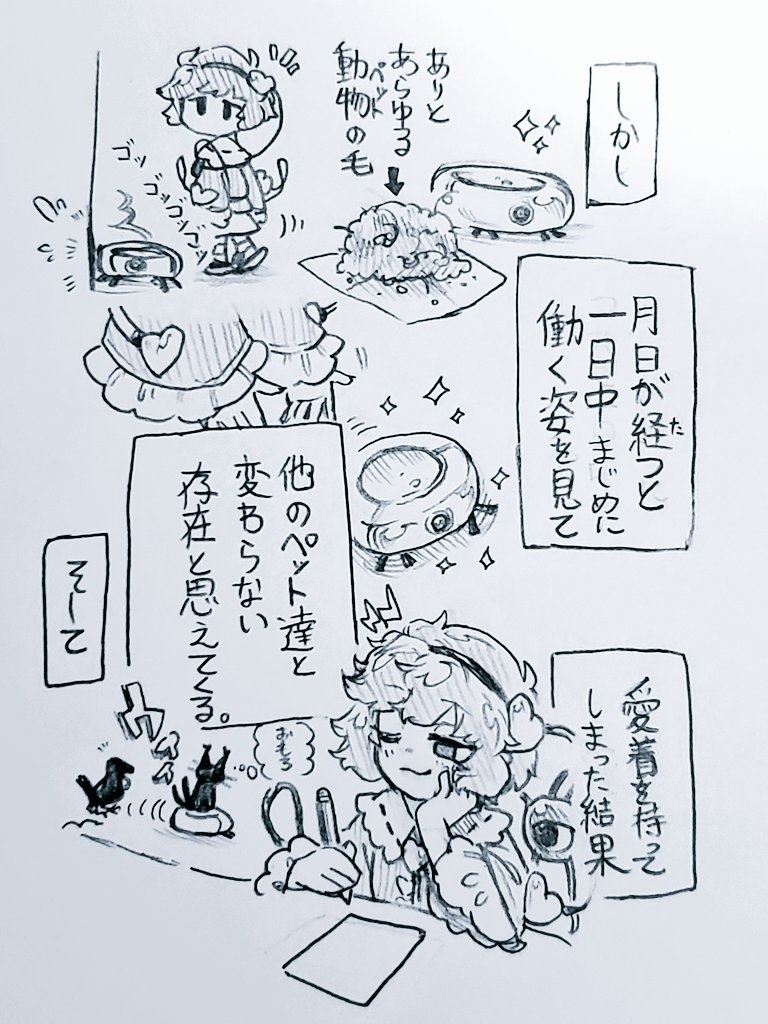 しかし
ありと
あらゆる
動物の毛
ペット
ゴッ
ゴッ
ゴッ
ゴッ
月日が経つと
た
一日中まじめに
働く姿を見て
他のペット達と
変わらない
存在と思えてくる。
そして
愛着を持って
しまった結果
おもろ
ウィィ